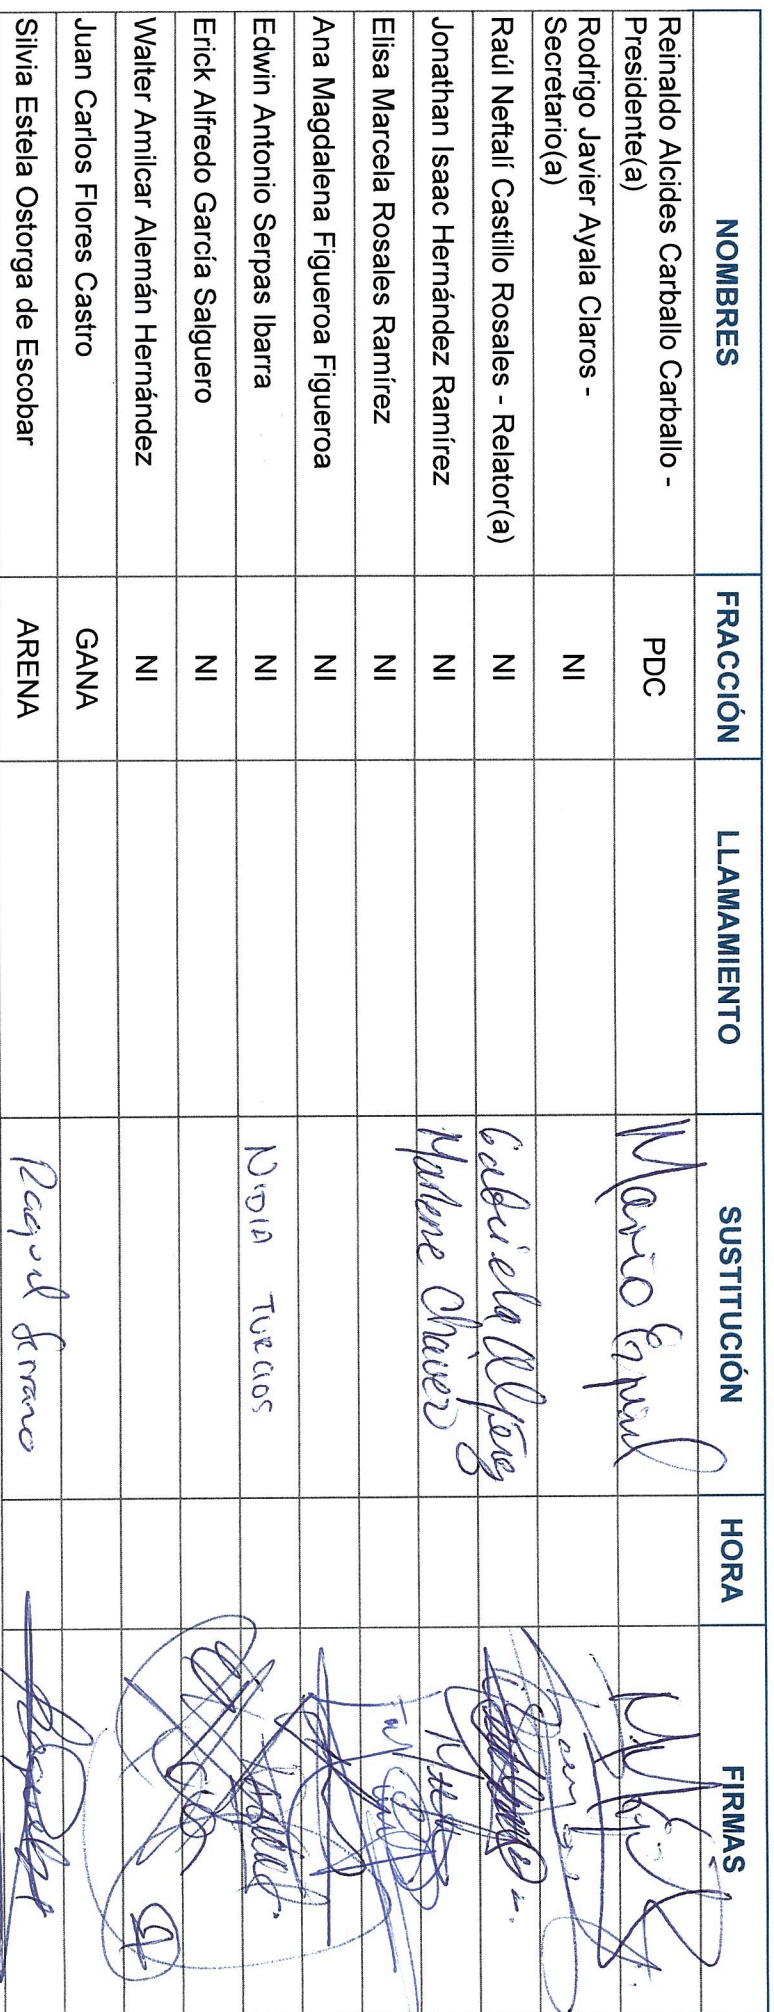 NOMBRES FRACCIÓN LLAMAMIENTO SUSTITUCIÓN HORA FIRMAS
Reinaldo Alcides Carballo Carballo -
Presidente(a) PDC Mario
Rodrigo Javier Ayala Claros -
Secretario(a) NI
Raúl Neftalí Castillo Rosales - Relator(a) NI Gabriela
Jonathan Isaac Hernández Ramírez NI Marlene Chávez
Elisa Marcela Rosales Ramírez NI
Ana Magdalena Figueroa Figueroa NI
Edwin Antonio Serpas Ibarra NI NIDIA TURCIOS
Erick Alfredo García Salguero NI
Walter Amilcar Alemán Hernández NI
Juan Carlos Flores Castro GANA
Silvia Estela Ostorga de Escobar ARENA Raquel Serrano